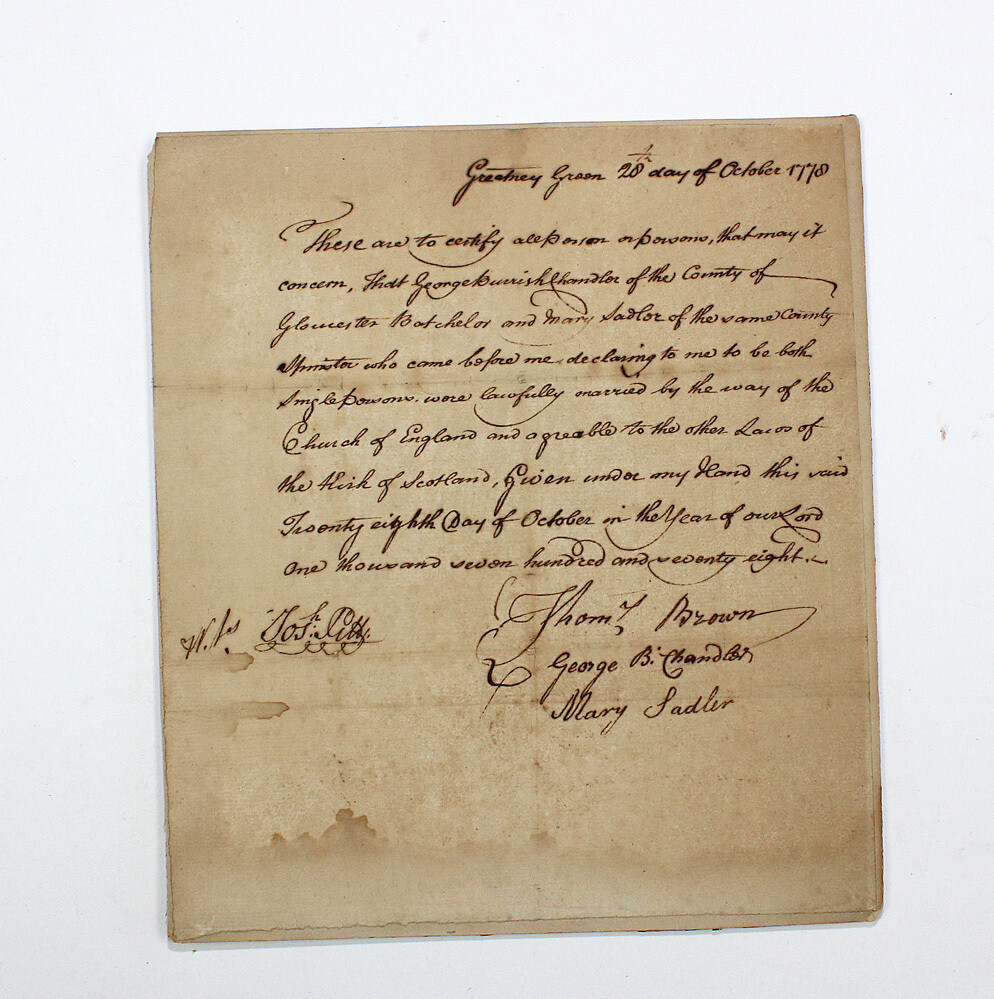 Greetney Green 28th day of October 1778
These are to certify all Person or persons, that may it
concern, That George Burrish Chandler of the County of
Gloucester Batchelor and Mary Sadler of the same County
Spinster who came before me declaring to me to be both
Single Persons, were lawfully married by the way of the
Church of England and agreable to the other Laws of
the Kirk of Scotland, Given under my Hand this said
Twenty eighth Day of October in the Year of our Lord
One thousand seven hundred and seventy eight.
Thoms Brown
Wts Josh: Pitt.
George B: Chandler
Mary Sadler